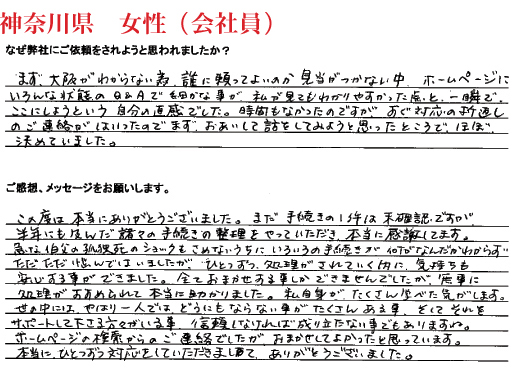 神奈川県　女性（会社員）
なぜ弊社にご依頼をされようと思われましたか？
まず、大阪がわからない為、誰に頼ってよいのか見当がつかない中、ホームページに
いろんな状態のQ&Aで細かな事が、私が見てもわかりやすかった点と、一瞬で、
ここにしようという自分の直感でした。時間もなかったのですが、すぐ対応の折返し
のご連絡がはいったのでまず、おあいして話をしてみようと思ったところで、ほぼ、
決めていました。
ご感想、メッセージをお願いします。
この度は本当にありがとうございました。まだ手続きの1件は未確認ですが、
半年にも及んだ諸々の手続きの整理をやっていただき、本当に感謝してます。
急な伯父の孤独死のショックもさめないうちにいろいろの手続きが何がなんだかわからず
ただただ悩んではいましたが、ひとつずつ処理がされていく内に、気持ちも
安心する事ができました。全ておまかせする事しかできませんでしたが、無事に
処理がすすめられて本当に助かりました。私自身がたくさん学べた気がします。
世の中には、やはり一人では、どうにもならない事がたくさんある事、そしてそれを
サポートして下さる方々がいる事、信頼しなければ成り立たない事でもありますね。
ホームページの検索からのご連絡でしたが、おまかせしてよかったと思っています。
本当に、ひとつずつ対応をしていただきまして、ありがとうございました。